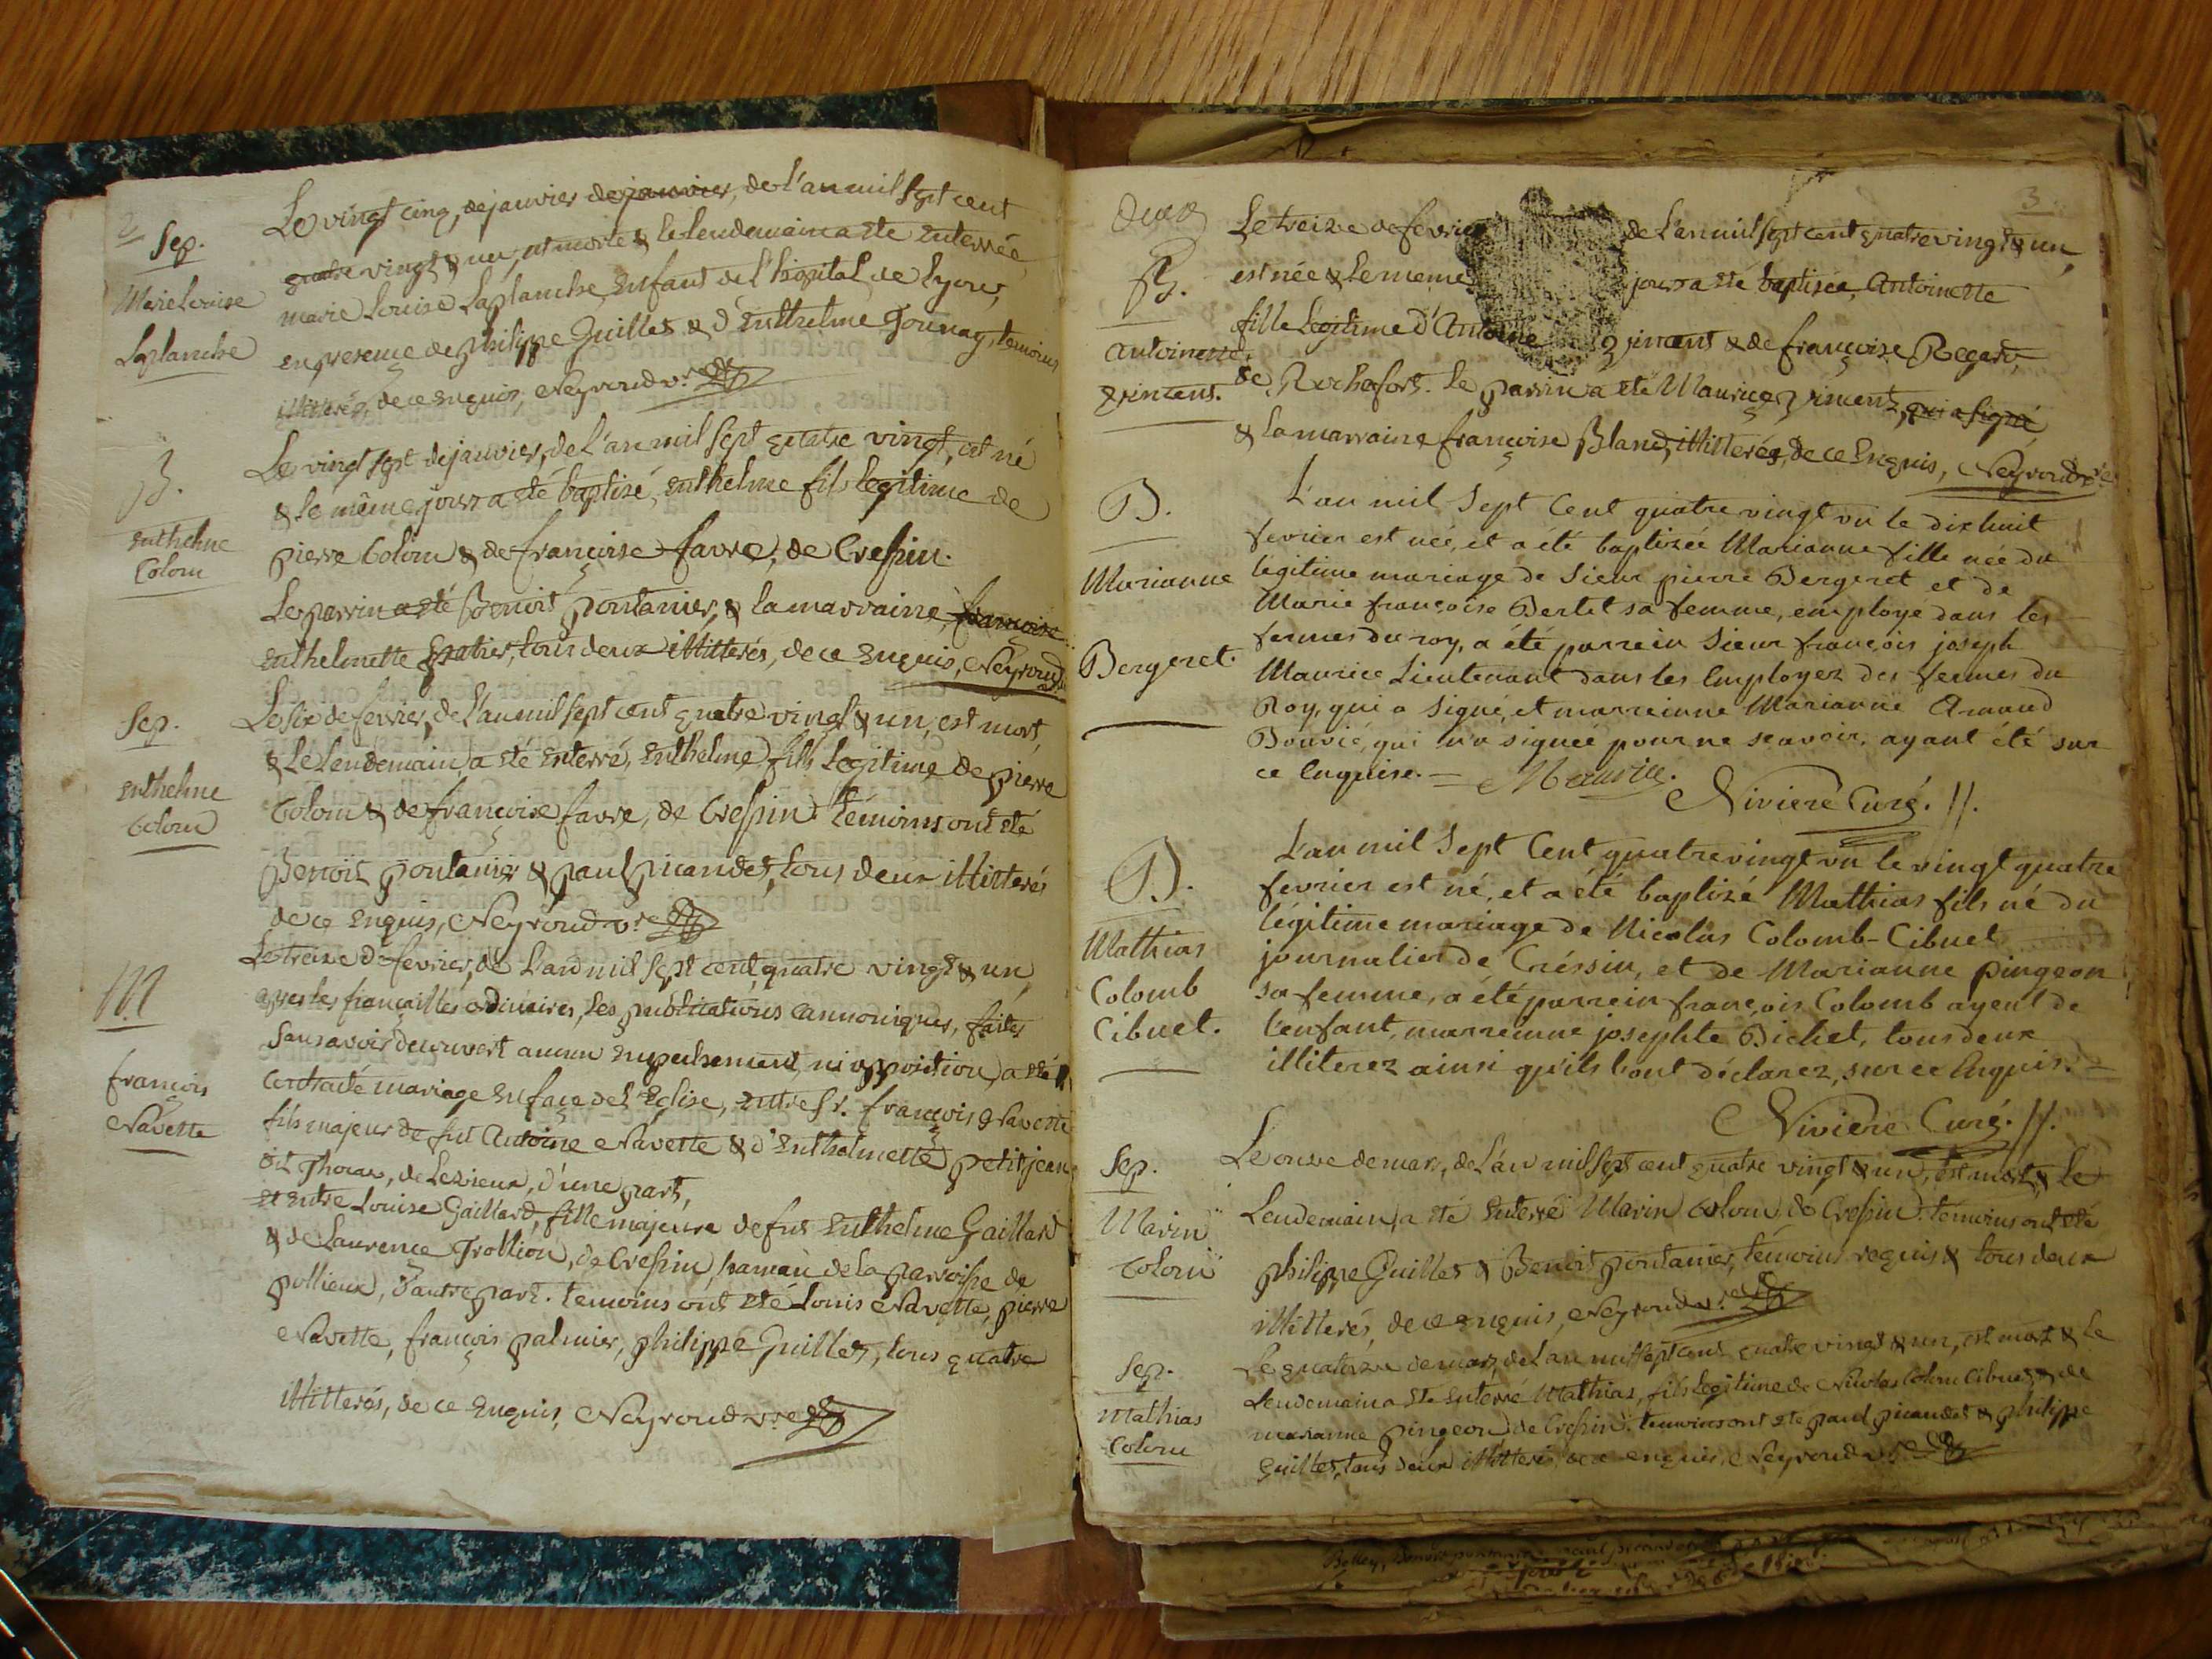 2
Sep.
Marie Louise
Laplanche
Le vingt cinq, de janvier de janvier, de L'an mil sept cent
quatre vingt & un, est morte & le lendemain a été enterrée
marie Louise Laplanche, enfant de l'hôpital de Lyon,
en presence de philippe Guillet & d'enthelme Gounay, temoins
illitterés, de ce enquis, Neyroud v.re
B.
enthelme
Colom
Le vingt sept de janvier, de L'an mil sept quatre vingt, est né
& le même jour a été baptisé, enthelme fils legitime de
pierre Colom & de françoise favre, de Cressin.
Le parrin a été Benoit pontanier, & la marraine, françoise
enthelmette, tous deux illitterés, de ce enquis, Neyroud
Sep.
enthelme
Colom
Le six de fevrier, de L'an mil sept cent quatre vingt & un, est mort,
& le lendemain, a été enterré, enthelme fils Legitime de pierre
Colom & de françoise favre, de Cressin. temoins ont été
Benoit pontanier & paul picandet, tous deux illitterés
de ce enquis, Neyroud v.re
M
françois
Navette
Le treize de fevrier, de L'an mil sept cent, quatre vingt & un,
apres les fiançailles ordinaires, les publications cannoniques, faites
sans avoir decouvert aucun empechement, ni opposition, a été
contracté mariage en face de L'Eglise, entre sr. françois Navette
fils majeur de fut Antoine Navette & d'enthelmette petitjean
dit de Lezieux, d'une part,
et entre Louise Gaillard, fille majeure de fut enthelme Gaillard
& de Laurence Trollion, de Cressin, hameau de la parroisse de
pollieux, d'autre part. temoins ont été Louis Navette, pierre
Navette, françois palmier, philippe Guillet, tous quatre
illitterés, de ce enquis, Neyroud v.re
3
deux
B.
antoinette
quincent.
Le treize de fevrier de L'an mil sept cent quatre vingt & un,
est née & le meme jour a été baptisée, antoinette
fille Légitime d'Antoine quincent & de françoise Regard,
de Rochefort. Le parrin a été Maurice quincent, qui a signé
& la marraine françoise Bland, illitterés, de ce enquis, Neyroud v.re
B.
Marianne
Bergeret.
L'an mil sept Cent quatre vingt un le dix huit
fevrier est née, et a été baptizée Marianne fille née du
légitime mariage de Sieur pierre Bergeret et de
Marie françoise Bertet sa femme, employé dans les
fermes du roy, a été parrein Sieur françois joseph
Maurice Lieutenant dans les Employez des fermes du
Roy, qui a signé, et marreinne Marianne Arnaud
Bouvié, qui n'a signée pour ne scavoir, ayant été sur
ce Enquise. = Maurice.
Niviere Curé. //.
B.
Mathias
Colomb
Cibuet.
L'an mil Sept Cent quatre vingt un le vingt quatre
fevrier est né, et a été baptizé Mathias fils né du
légitime mariage de Nicolas Colomb-Cibuet
journalier de Créssin, et de Marianne pingeon
sa femme, a été parrein françois Colomb ayeul de
l'enfant, marreinne josephte Bichet, tous deux
illiterez ainsi qu'ils l'ont déclarez, sur ce Enquis. =
Niviere Curé. //.
Sep.
Marin
Colom
Le onze de mars, de L'an mil sept cent quatre vingt & un, est mort, & le
Lendemain, a été enterré Marin Colom de Cressin. temoins ont été
philippe Guillet & Benoit pontanier, témoins requis & tous deux
illitterés, de ce enquis, Neyroud v.re
Sep.
Mathias
Colom
Le quatorze de mars, de L'an mil sept cent quatre vingt & un, est mort & le
Lendemain a été enterré Mathias, fils legitime de Nicolas Colom Cibuet & de
marianne pingeon de Cressin. temoins ont été paul picandet & philippe
guillet, tous deux illitterés, de ce enquis, Neyroud v.re